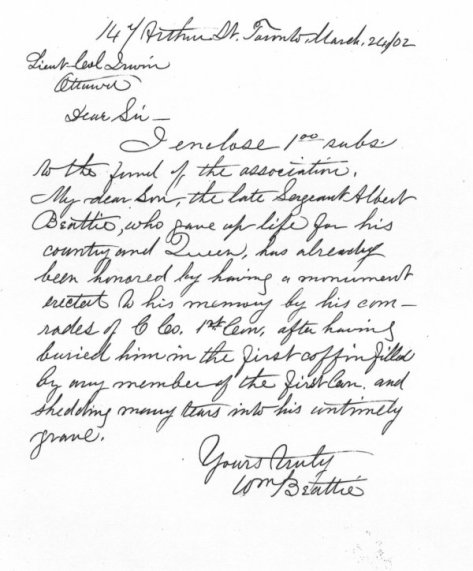 147 Arthur St. Toronto, March, 24/02
Lieut Col Irwin
Ottawa
Dear Sir —
I enclose 1⁰⁰ subs.
to the fund of the association.
My dear Son, the late Sergeant Albert
Beattie, who gave up life for his
country and Queen, has already
been honored by having a monument
erected to his memory by his com–
rades of C Co. 1st Con, after having
buried him in the first coffin filled
by any member of the first Con, and
shedding many tears into his untimely
grave.
Yours truly
Wm Beattie